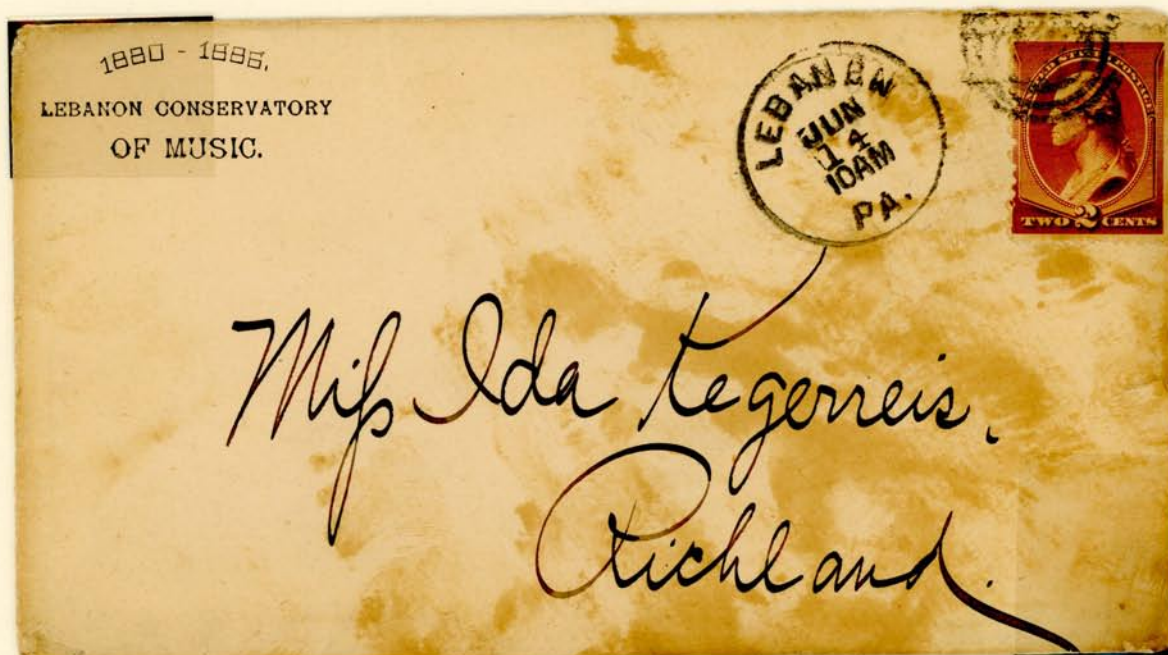 1880 - 1886.
LEBANON CONSERVATORY
OF MUSIC.
LEBANON
JUN
14
10AM
PA.
UNITED STATES POSTAGE
TWO 2 CENTS
Miſs Ida Kegerreis.
Richland.